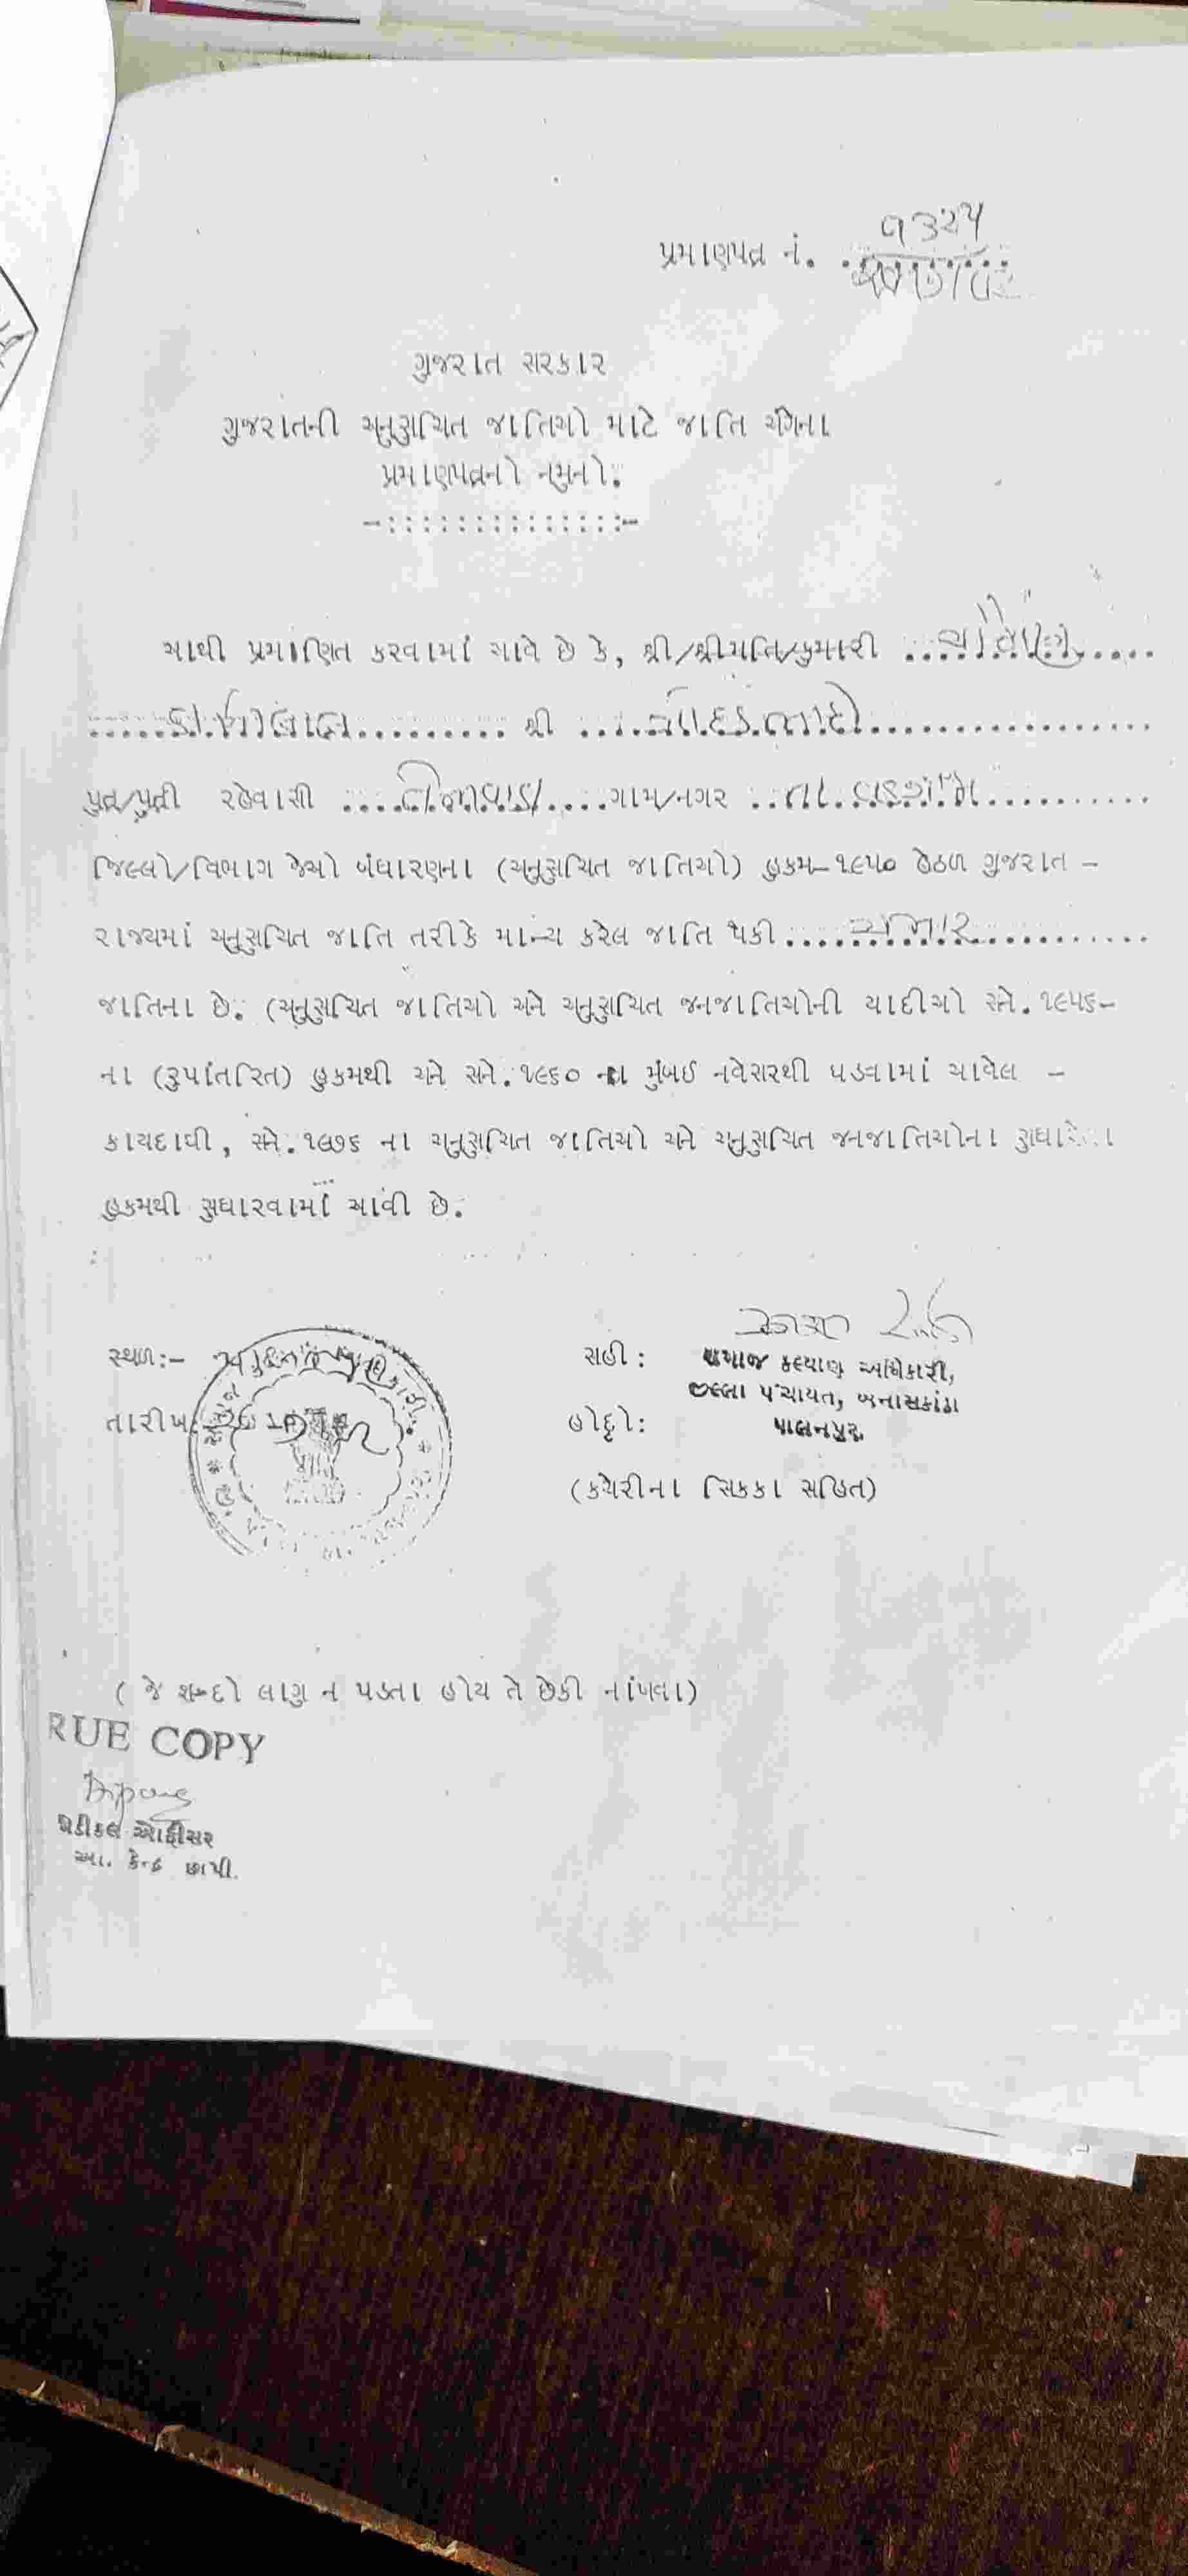 પ્રમાણપત્ર નં. ૧૩૨૫
ગુજરાત સરકાર
ગુજરાતની અનુસુચિત જાતિઓ માટે જાતિ અંગેના
પ્રમાણપત્રનો નમુનો.
-::::::::::::::-
આથી પ્રમાણિત કરવામાં આવે છે કે, શ્રી/શ્રીમતિ/કુમારી
શ્રી
પુત્ર/પુત્રી રહેવાસી ગામ/નગર તા. વડગામ
જિલ્લો/વિભાગ જેઓ બંધારણના (અનુસુચિત જાતિઓ) હુકમ-૧૯૫૦ હેઠળ ગુજરાત -
રાજ્યમાં અનુસુચિત જાતિ તરીકે માન્ય કરેલ જાતિ પૈકી ચમાર
જાતિના છે. (અનુસુચિત જાતિઓ અને અનુસુચિત જનજાતિઓની યાદીઓ સને.૧૯૫૬-
ના (રૂપાંતરિત) હુકમથી અને સને.૧૯૬૦ ના મુંબઈ નવેસરથી ઘડવામાં આવેલ -
કાયદાથી, સને.૧૯૭૬ ના અનુસુચિત જાતિઓ અને અનુસુચિત જનજાતિઓના સુધારેલા
હુકમથી સુધારવામાં આવી છે.
સ્થળ:-
સહી :
સમાજ કલ્યાણ અધિકારી,
જીલ્લા પંચાયત, બનાસકાંઠા
તારીખ:
હોદ્દો:
પાલનપુર.
(કચેરીના સિક્કા સહિત)
( જે શબ્દો લાગુ ન પડતા હોય તે છેકી નાંખવા)
RUE COPY
મેડીકલ ઓફીસર
આ. કેન્દ્ર છાપી.